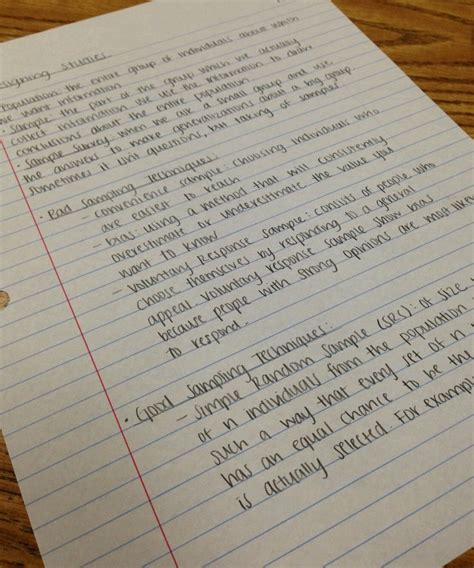 signing Studies
Population: the entire group of individuals about which
we want information
• Sample: the part of the group which we actually
collect information. We use the information to draw
conclusions about the entire population
• Sample Survey: when we ask a small group and use
the answers to make generalizations about a big group.
Sometimes it isn't questions, but taking of samples
• Bad Sampling Techniques:
- convenience sample: choosing individuals who
are easier to reach
- bias: using a method that will consistently
overestimate or underestimate the value you
want to know
- Voluntary Response Sample: consists of people who
choose themselves by responding to a general
appeal. Voluntary response sample show bias
because people with strong opinions are most likely
to respond.
• Good Sampling Techniques:
- Simple Random Sample (SRS): of size
of n individuals from the population
such a way that every set of n
has an equal chance to be the
is actually selected. For example